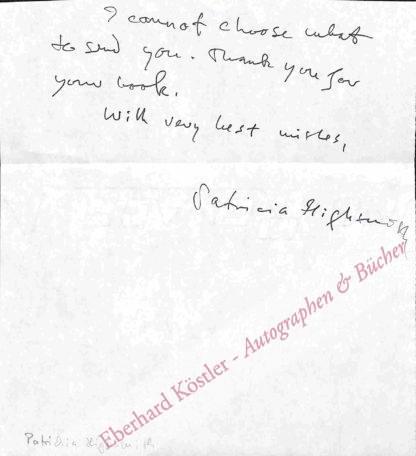 I cannot choose what
to send you. Thank you for
your book.
With very best wishes,
Patricia Highsmith
Eberhard Köstler - Autographen & Bücher
Patricia Highsmith